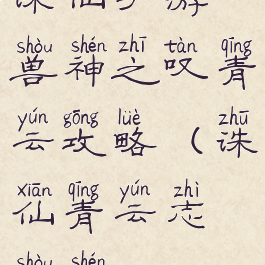 诛仙手游
shòu shén zhī tàn qīng
兽神之叹青
yún gōng lüè zhū
云攻略（诛
xiān qīng yún zhì
仙青云志
shòu shén